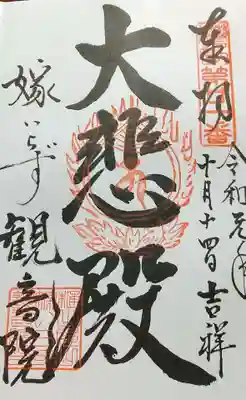 奉拝
令和元年
十月十四日吉祥
大悲殿
嫁いらず
観音院